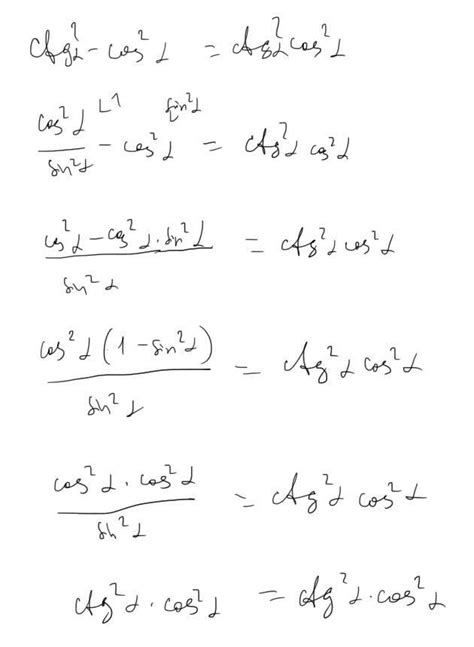 ctg²α - cos²α = ctg²α cos²α
cos²α/sin²α ⌊1 - cos²α ⌊sin²α = ctg²α cos²α
(cos²α - cos²α · sin²α)/sin²α = ctg²α cos²α
cos²α (1 - sin²α)/sin²α = ctg²α cos²α
cos²α · cos²α/sin²α = ctg²α cos²α
ctg²α · cos²α = ctg²α · cos²α